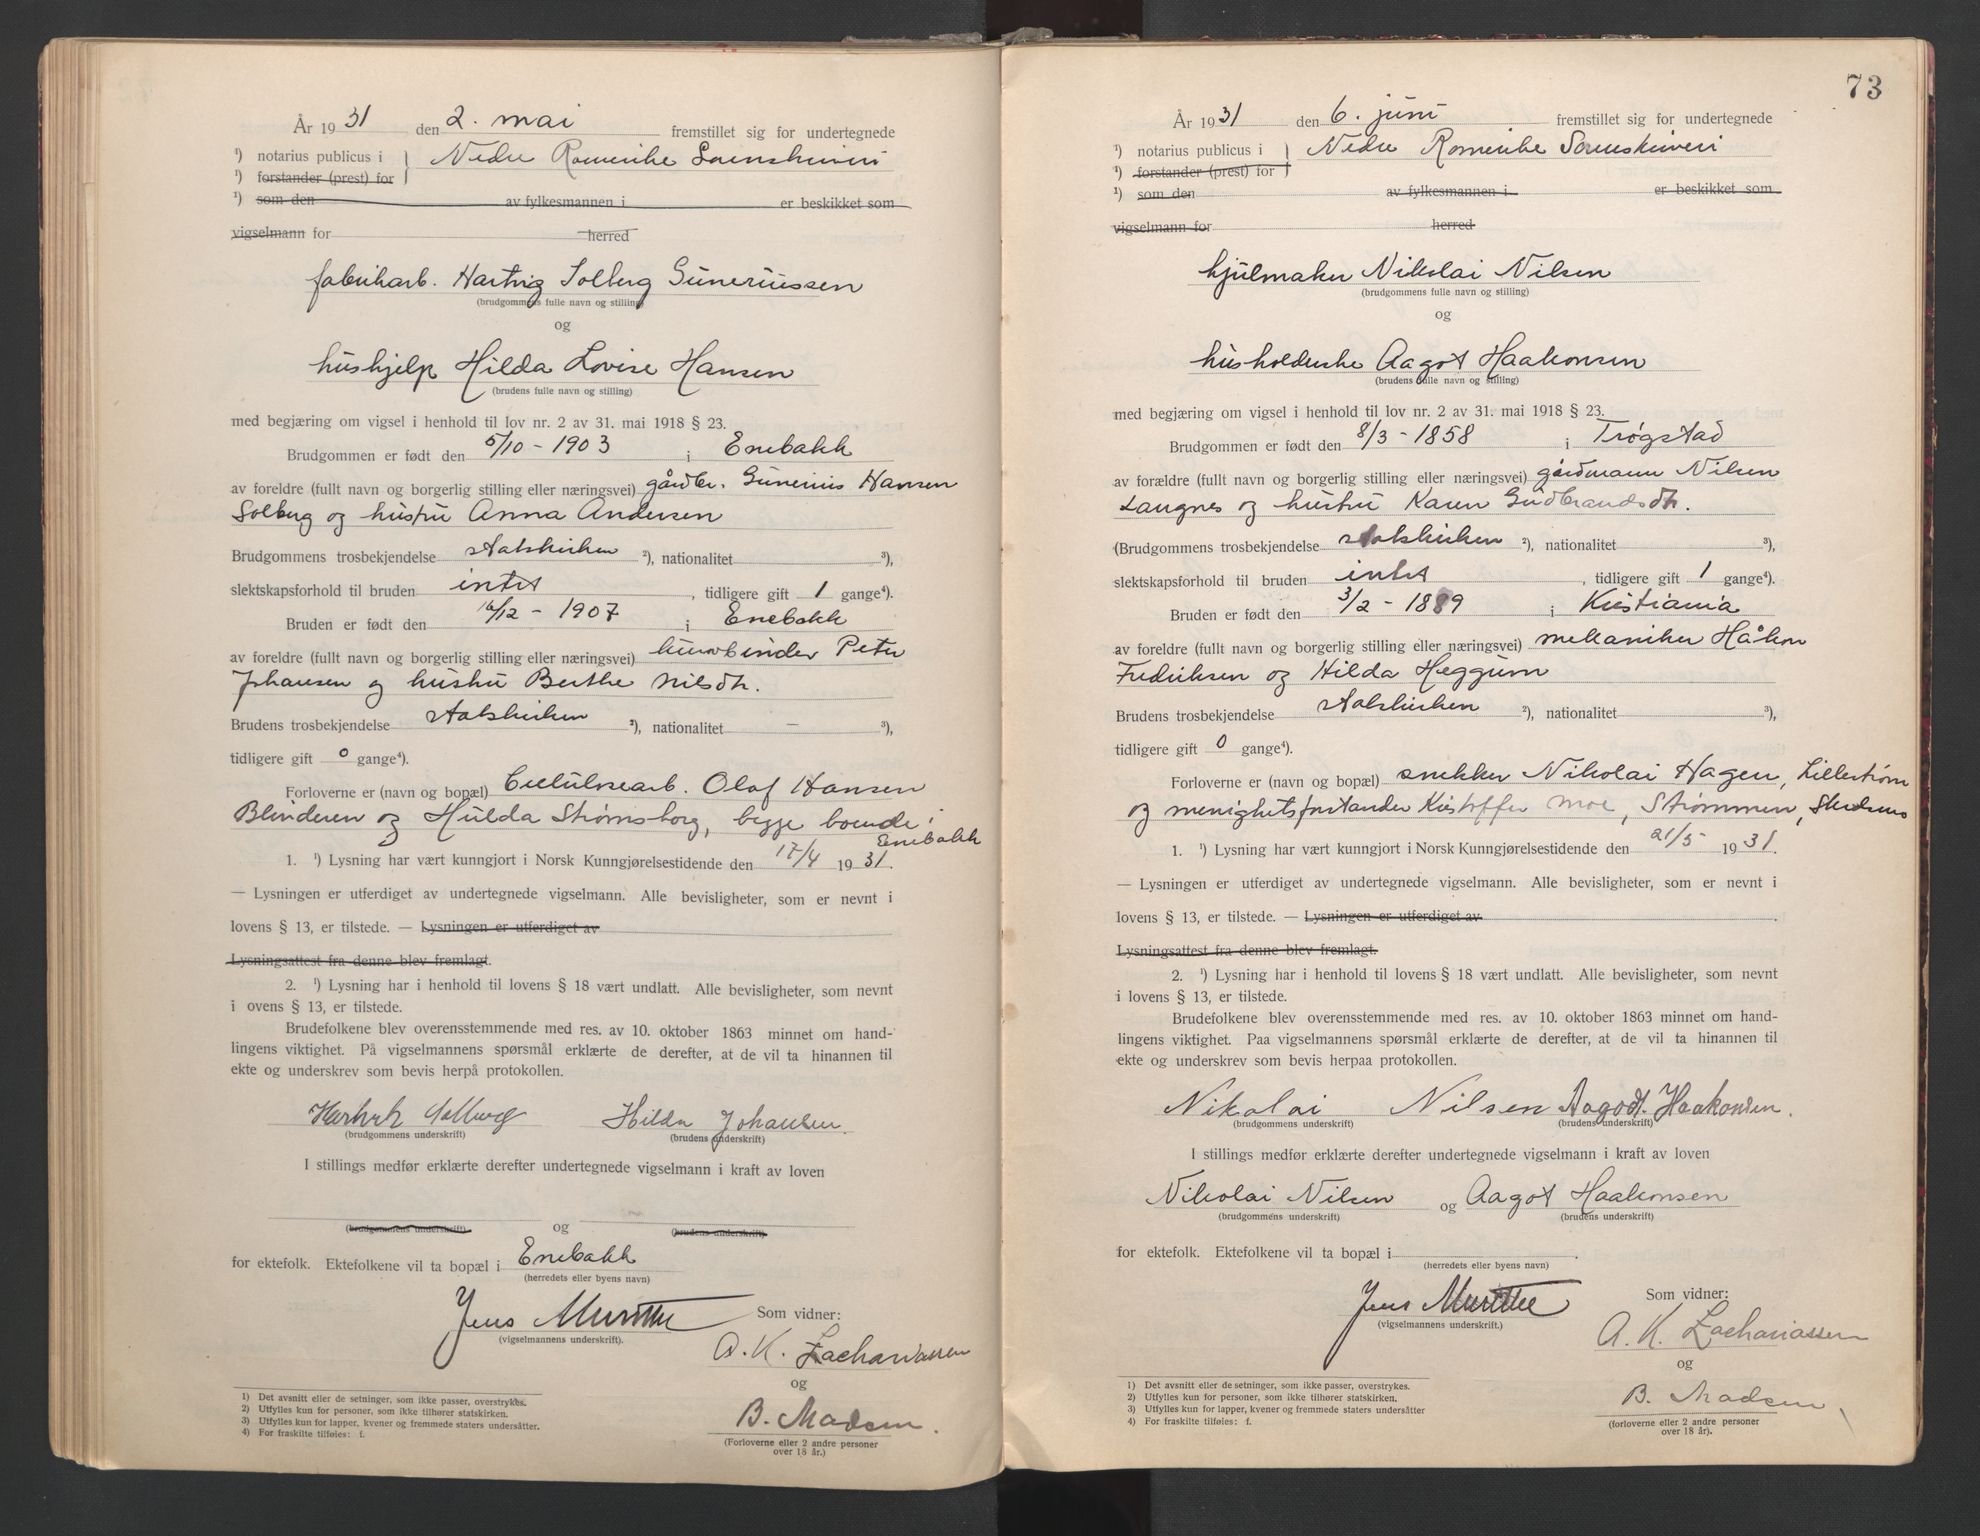 År 1931 den 2. mai fremstillet sig for undertegnede
¹) notarius publicus i } Nedre Romerike Sorenskriveri
¹) forstander (prest) for
¹) som den av fylkesmannen i er beskikket som
vigselmann for herred
fabrikarb. Hartvig Solberg Guneriussen
(brudgommens fulle navn og stilling)
og
hushjelp Hilda Lovise Hansen
(brudens fulle navn og stilling)
med begjæring om vigsel i henhold til lov nr. 2 av 31. mai 1918 § 23.
Brudgommen er født den 5/10 - 1903 i Enebakk
av foreldre (fullt navn og borgerlig stilling eller næringsvei) gårdbr. Gunerius Hansen
Solberg og hustru Anna Andersen
Brudgommens trosbekjendelse statskirken ²), nationalitet ³),
slektskapsforhold til bruden intet, tidligere gift 1 gange⁴).
Bruden er født den 16/12 - 1907 i Enebakk
av foreldre (fullt navn og borgerlig stilling eller næringsvei) kurvbinder Peter
Johansen og hustru Berthe Nilsdtr.
Brudens trosbekjendelse statskirken ²), nationalitet — ³),
tidligere gift 0 gange⁴).
Forloverne er (navn og bopæl) Cellulosearb. Olaf Hansen
Blinderen og Hulda Strømsborg, begge boende i
Enebakk
1. ¹) Lysning har vært kunngjort i Norsk Kunngjørelsestidende den 17/4 1931.
— Lysningen er utferdiget av undertegnede vigselmann. Alle bevisligheter, som er nevnt i
lovens § 13, er tilstede. — Lysningen er utferdiget av
Lysningsattest fra denne blev fremlagt.
2. ¹) Lysning har i henhold til lovens § 18 vært undlatt. Alle bevisligheter, som nevnt
i ovens § 13, er tilstede.
Brudefolkene blev overensstemmende med res. av 10. oktober 1863 minnet om hand-
lingens viktighet. På vigselmannens spørsmål erklærte de derefter, at de vil ta hinannen til
ekte og underskrev som bevis herpå protokollen.
Solberg Hilda Johansen.
(brudgommens underskrift) (brudens underskrift)
I stillings medfør erklærte derefter undertegnede vigselmann i kraft av loven
og
(brudgommens underskrift) (brudens underskrift)
for ektefolk. Ektefolkene vil ta bopæl i Enebakk
(herredets eller byens navn)
Jens
(vigselmannens underskrift).
Som vidner:
A. K. Zachariassen
og
B. Madsen.
(Forloverne eller 2 andre personer
over 18 år.)
1) Det avsnitt eller de setninger, som ikke passer, overstrykes.
2) Utfylles kun for personer, som ikke tilhører statskirken.
3) Utfylles kun for lapper, kvener og fremmede staters undersåtter.
4) For fraskilte tilføies: f.
73
År 1931 den 6. juni fremstillet sig for undertegnede
¹) notarius publicus i } Nedre Romerike Sorenskriveri
¹) forstander (prest) for
¹) som den av fylkesmannen i er beskikket som
vigselmann for herred
hjulmaker Nikolai Nilsen
(brudgommens fulle navn og stilling)
og
husholderske Aagot Haakonsen
(brudens fulle navn og stilling)
med begjæring om vigsel i henhold til lov nr. 2 av 31. mai 1918 § 23.
Brudgommen er født den 8/3 - 1858 i Trøgstad
av forældre (fullt navn og borgerlig stilling eller næringsvei) gårdmann Nilsen
Langnes og hustru Karen Gudbrandsdtr.
(Brudgommens trosbekjendelse statskirken ²), nationalitet ³),
slektskapsforhold til bruden intet, tidligere gift 1 gange⁴).
Bruden er født den 3/2 - 1889 i Kristiania
av foreldre (fullt navn og borgerlig stilling eller næringsvei) mekaniker Håkon
Fredriksen og Hilda Heggum
Brudens trosbekjendelse statskirken ²), nationalitet ³),
tidligere gift 0 gange⁴).
Forloverne er (navn og bopæl) snekker Nikolai Hagen, Lillestrøm
og menighetsforstander Kristoffer Moe, Strømmen, Skedsmo
1. ¹) Lysning har vært kunngjort i Norsk Kunngjørelsestidende den 21/5 1931.
— Lysningen er utferdiget av undertegnede vigselmann. Alle bevisligheter, som er nevnt i
lovens § 13, er tilstede. — Lysningen er utferdiget av .
Lysningsattest fra denne blev fremlagt.
2. ¹) Lysning har i henhold til lovens § 18 vært undlatt. Alle bevisligheter, som nevnt
i lovens § 13, er tilstede.
Brudefolkene blev overensstemmende med res. av 10. oktober 1863 minnet om hand-
lingens viktighet. Paa vigselmannens spørsmål erklærte de derefter, at de vil ta hinannen til
ekte og underskrev som bevis herpaa protokollen.
Nikolai Nilsen Aagodt. Haakonsen.
(brudgommens underskrift) (brudens underskrift)
I stillings medfør erklærte derefter undertegnede vigselmann i kraft av loven
Nikolai Nilsen og Aagot Haakonsen
(brudgommens underskrift) (brudens underskrift)
for ektefolk. Ektefolkene vil ta bopæl i .
(herredets eller byens navn)
Jens
(vigselmannens underskrift.)
Som vidner:
A. K. Zachariassen
og
B. Madsen
(forloverne eller 2 andre personer
over 18 år).
1) Det avsnitt eller de setninger, som ikke passer, overstrykes.
2) Utfylles kun for personer, som ikke tilhører statskirken.
3) Utfylles kun for lapper, kvener og fremmede staters undersåtter
4) For fraskilte tilføies: f.